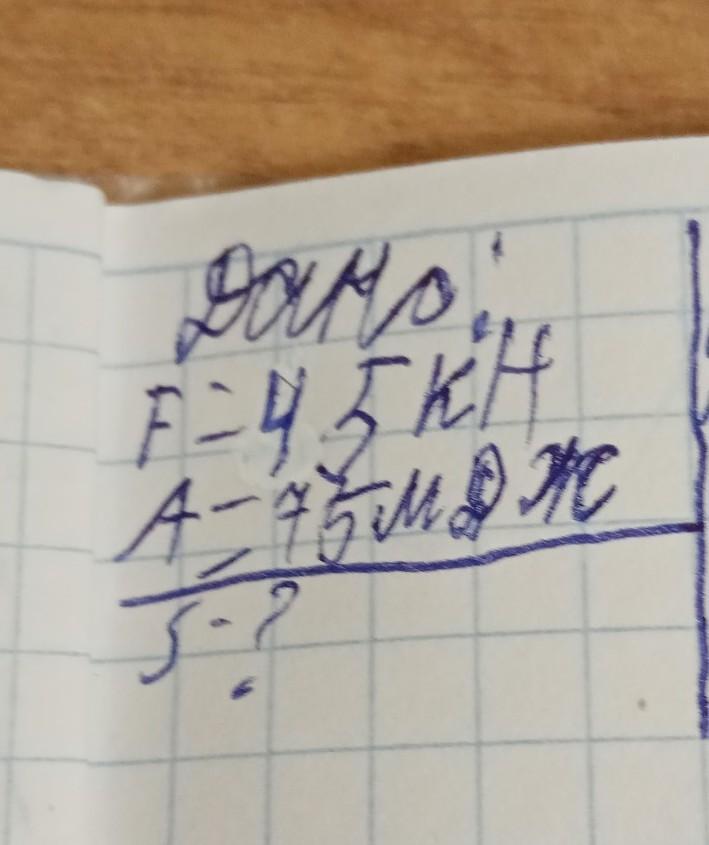 Дано:
F=45кН
A=75мДж
S-?